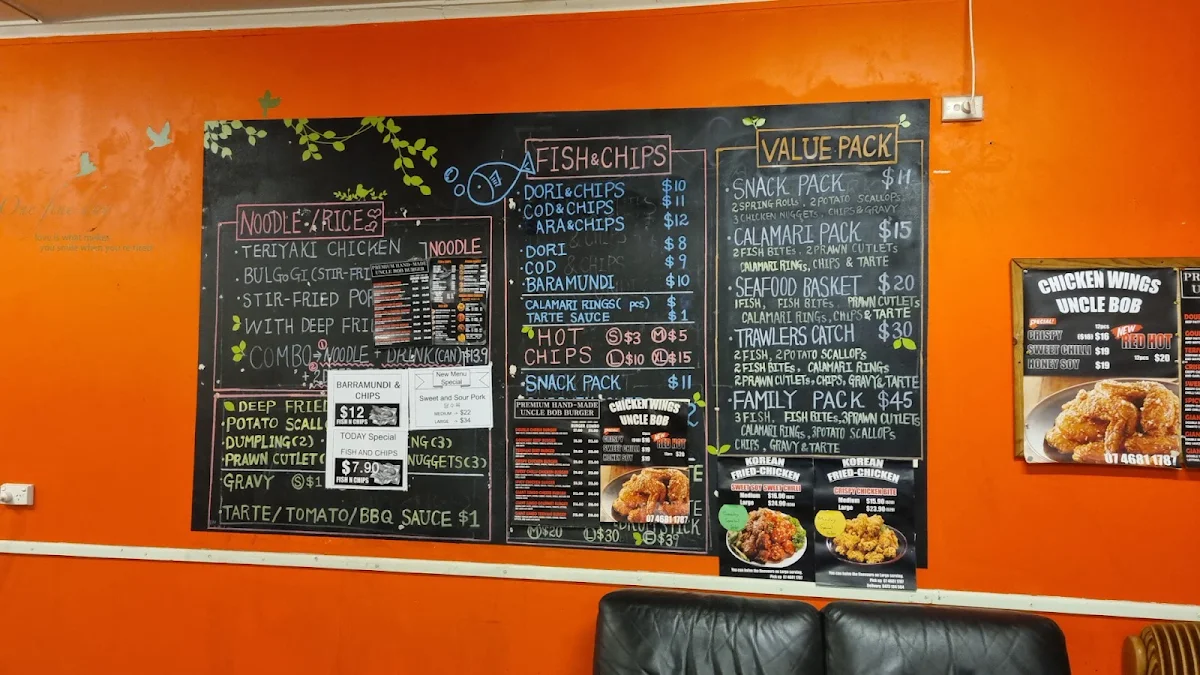 NOODLE/RICE
TERIYAKI CHICKEN
NOODLE
BULGOGI (STIR-FRI
STIR-FRIED POR
WITH DEEP FRIE
COMBO NOODLE + DRINK(CAN)
PREMIUM HAND-MADE
UNCLE BOB BURGER
BARRAMUNDI &
CHIPS
$12
FISH N CHIPS
TODAY Special
FISH AND CHIPS
$7.90
FISH N CHIPS
New Menu
Special
Sweet and Sour Pork
MEDIUM - $22
LARGE - $34
DEEP FRIE
POTATO SCALL
DUMPLING(2)
NG(3)
PRAWN CUTLET
NUGGETS(3)
GRAVY Ⓢ$1
TARTE/TOMATO/BBQ SAUCE $1
FISH&CHIPS
DORI&CHIPS $10
COD&CHIPS $11
ARA&CHIPS $12
DORI $8
COD $9
BARAMUNDI $10
CALAMARI RINGS( pcs) $1
TARTE SAUCE $1
HOT CHIPS
Ⓢ$3 Ⓜ$5
Ⓛ$10 XL$15
SNACK PACK $11
PREMIUM HAND-MADE
UNCLE BOB BURGER
CHICKEN WINGS
UNCLE BOB
CRISPY
SWEET CHILLI
HONEY SOY
RED HOT
07 4681 1787
STICK
Ⓜ$20 Ⓛ$30 $39
VALUE PACK
SNACK PACK $11
2SPRING ROLLS, 2POTATO SCALLOPS
3CHICKEN NUGGETS, CHIPS&GRAVY
CALAMARI PACK $15
2FISH BITES, 2PRAWN CUTLETS
CALAMARI RINGS, CHIPS & TARTE
SEAFOOD BASKET $20
1FISH, FISH BITES, PRAWN CUTLETS
CALAMARI RINGS, CHIPS & TARTE
TRAWLERS CATCH $30
2FISH, 2POTATO SCALLOPS
2FISH BITES, CALAMARI RINGS
2PRAWN CUTLETS, CHIPS, GRAVY&TARTE
FAMILY PACK $45
3FISH, FISH BITES, 3PRAWN CUTLETS
CALAMARI RINGS, 3POTATO SCALLOPS
CHIPS, GRAVY & TARTE
KOREAN
FRIED-CHICKEN
SWEET SOY SWEET CHILLI
Medium $16.90
Large $24.90
KOREAN
FRIED-CHICKEN
CRISPY CHICKEN BITE
Medium $15.90
Large $23.90
CHICKEN WINGS
UNCLE BOB
SPECIAL!
12pcs
CRISPY $16
SWEET CHILLI $19
HONEY SOY $19
NEW
RED HOT
12pcs $20
07 4681 1787